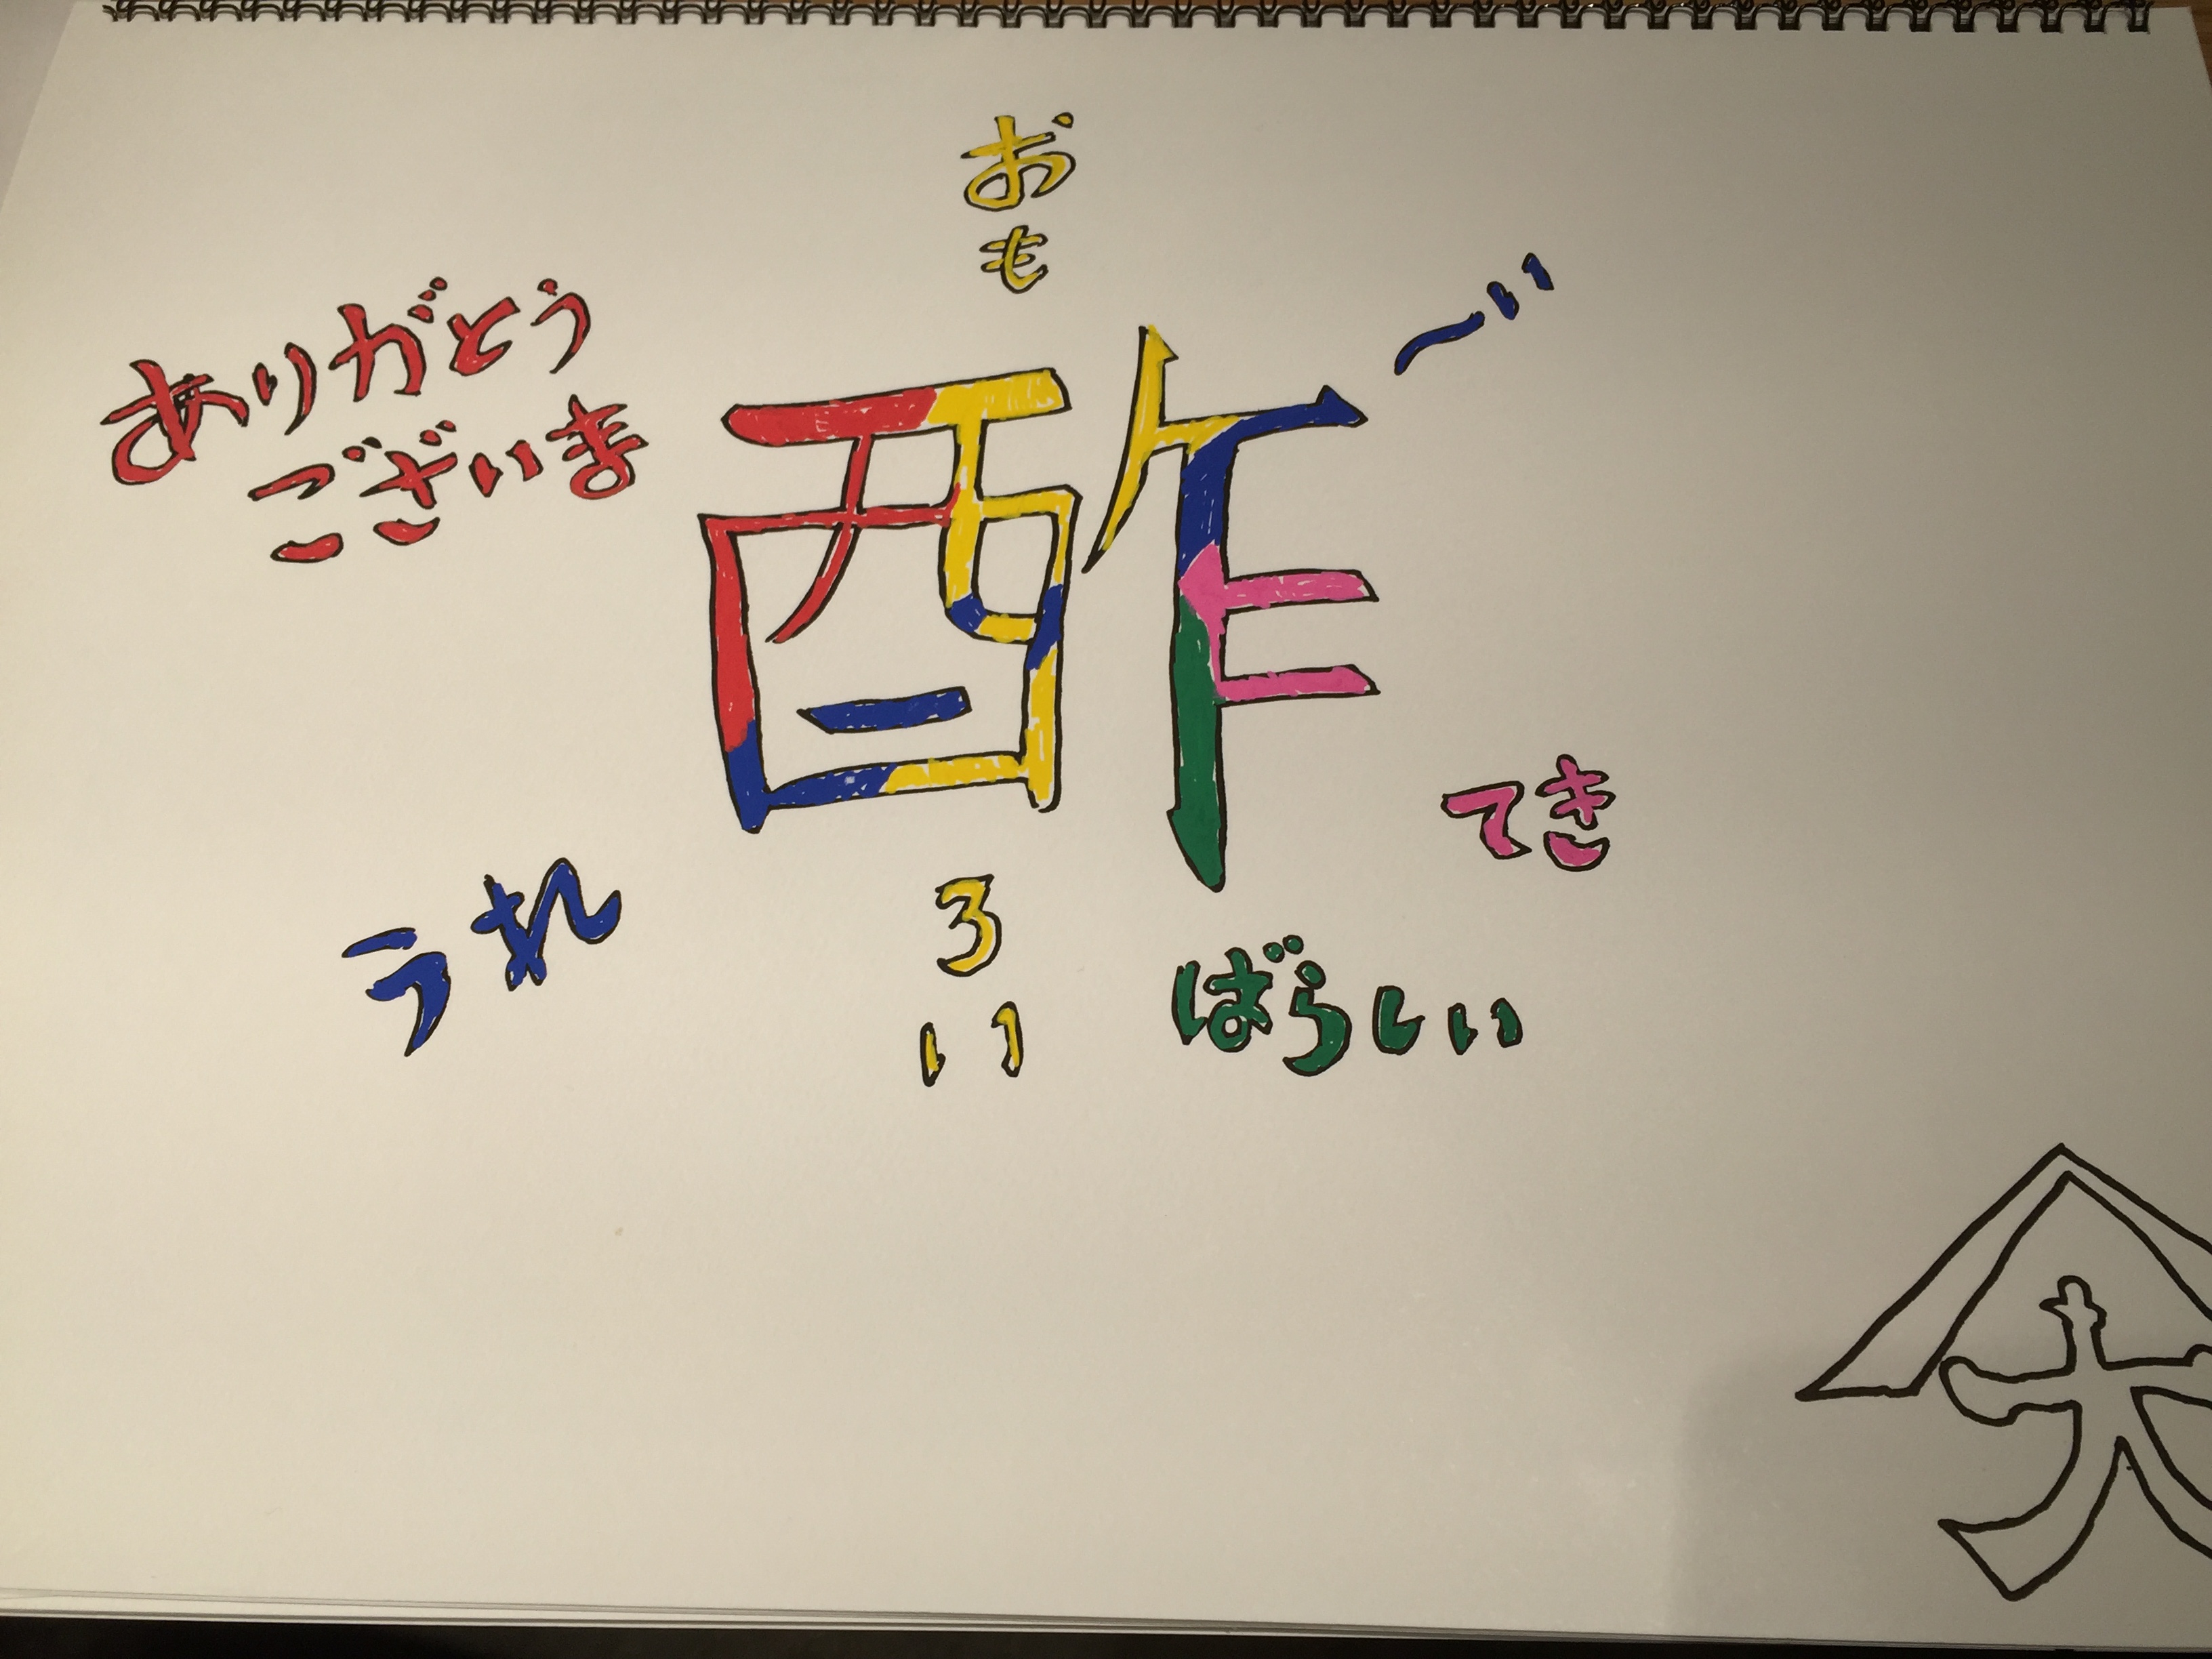 ありがとう
ございま
おも
酢
〜い
うれ
ろい
てき
ばらしい